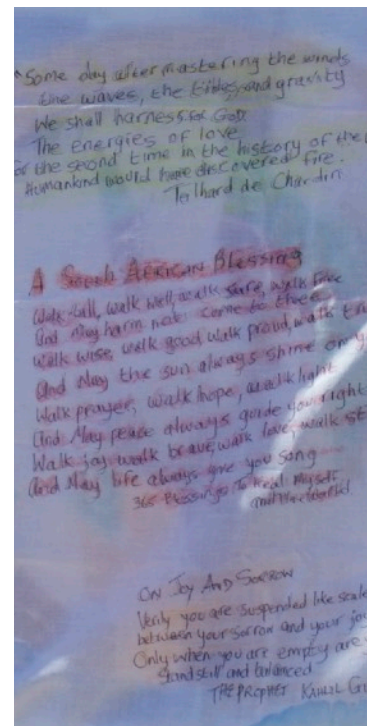 "Some day after mastering the winds
the waves, the tides, and gravity
We shall harness for God
The energies of love
for the second time in the history of the
Humankind would have discovered fire.
Teilhard de Chardin
A South African Blessing
Walk tall, walk well, walk safe, walk free
And May harm never come to thee
Walk wise, walk good walk proud, walk
And May the sun always shine on
Walk prayer, walk hope, walk light
And May peace always guide you right
Walk joy, walk brave, walk love, walk
And May life always give you song
365 Blessings To Heal Myself
and the World.
On Joy And Sorrow
Verily you are suspended like
between your sorrow and your
Only when you are empty are
standstill and balanced
THE PROPHET KAHLIL